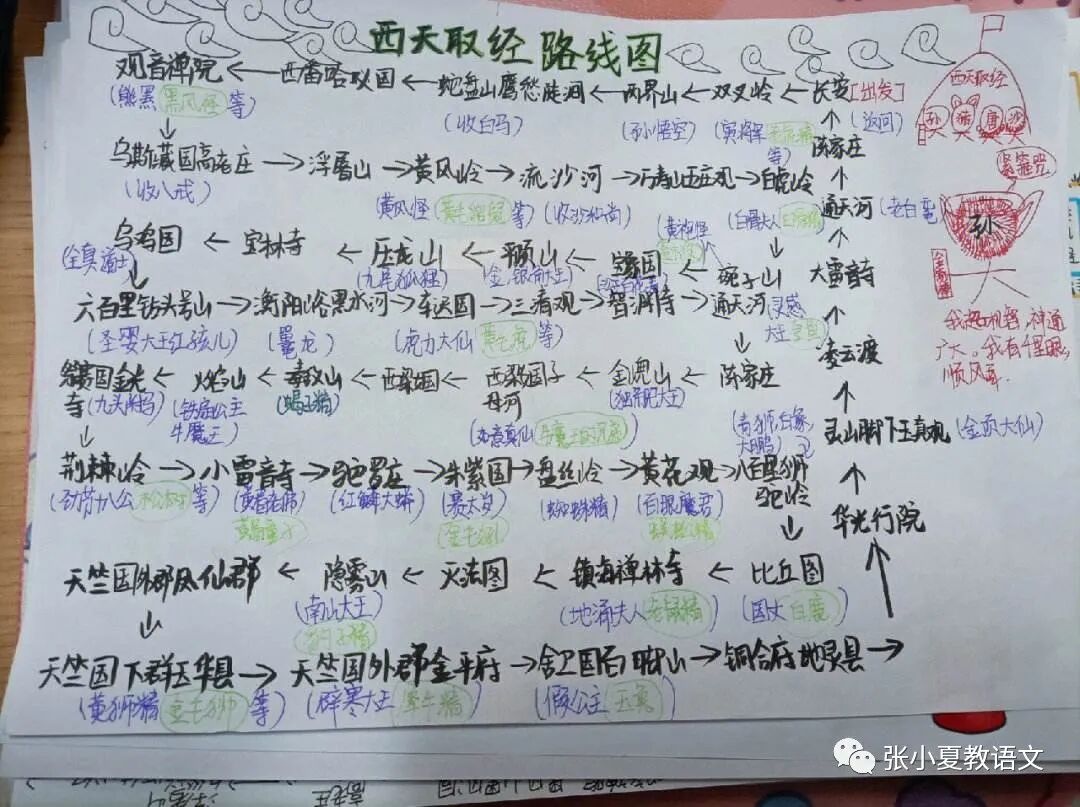 西天取经路线图
观音禅院←西番哈咇国←蛇盘山鹰愁陡涧←两界山←双叉岭←长安[出发]
(熊罴 黑风怪等) (收白马) (孙悟空) (寅将军 等) (返回)
西天取经
孙 猪 唐 沙
乌斯藏国高老庄→浮屠山→黄风岭→流沙河→万寿山五庄观→白虎岭
陈家庄
(收八戒) (黄风怪 等) (收沙和尚) (白骨夫人)
紧箍咒
通天河(老白鼋)
孙
乌鸡国←宝林寺←压龙山←平顶山←宝象国←碗子山
(全真道士) (九尾狐狸) (金、银角大王) (黄袍怪
大雷音寺
六百里钻头号山→衡阳峪黑水河→车迟国→三清观→智渊寺→通天河(灵感大王
(圣婴大王红孩儿) (鼍龙) (虎力大仙 等)
金箍棒
凌云渡
祭赛国金光寺←火焰山←毒敌山←西梁国←西梁国子母河←金𠒇山←陈家庄
(九头驸马) (铁扇公主 牛魔王) (蝎子精) (如意真仙 (独角兕大王)
(青狮,白象,大鹏)
灵山脚下玉真观(金顶大仙)
荆棘岭→小雷音寺→驼罗庄→朱紫国→盘丝岭→黄花观→八百里狮驼岭
(劲节十八公 等) (黄眉老佛) (红鳞大蟒) (赛太岁) (蜘蛛精) (百眼魔君)
黄眉童子 蜈蚣精
华光行院
天竺国外郡凤仙郡←隐雾山←灭法国←镇海禅林寺←比丘国
(南山大王) (地涌夫人 老鼠精) (国丈 白鹿)
豹子精
天竺国下群玉华县→天竺国外群金平府→舍卫国百脚山→铜台府地灵县→
(黄狮精 等) (辟寒大王 犀牛精) (假公主 玉兔)
张小夏教语文